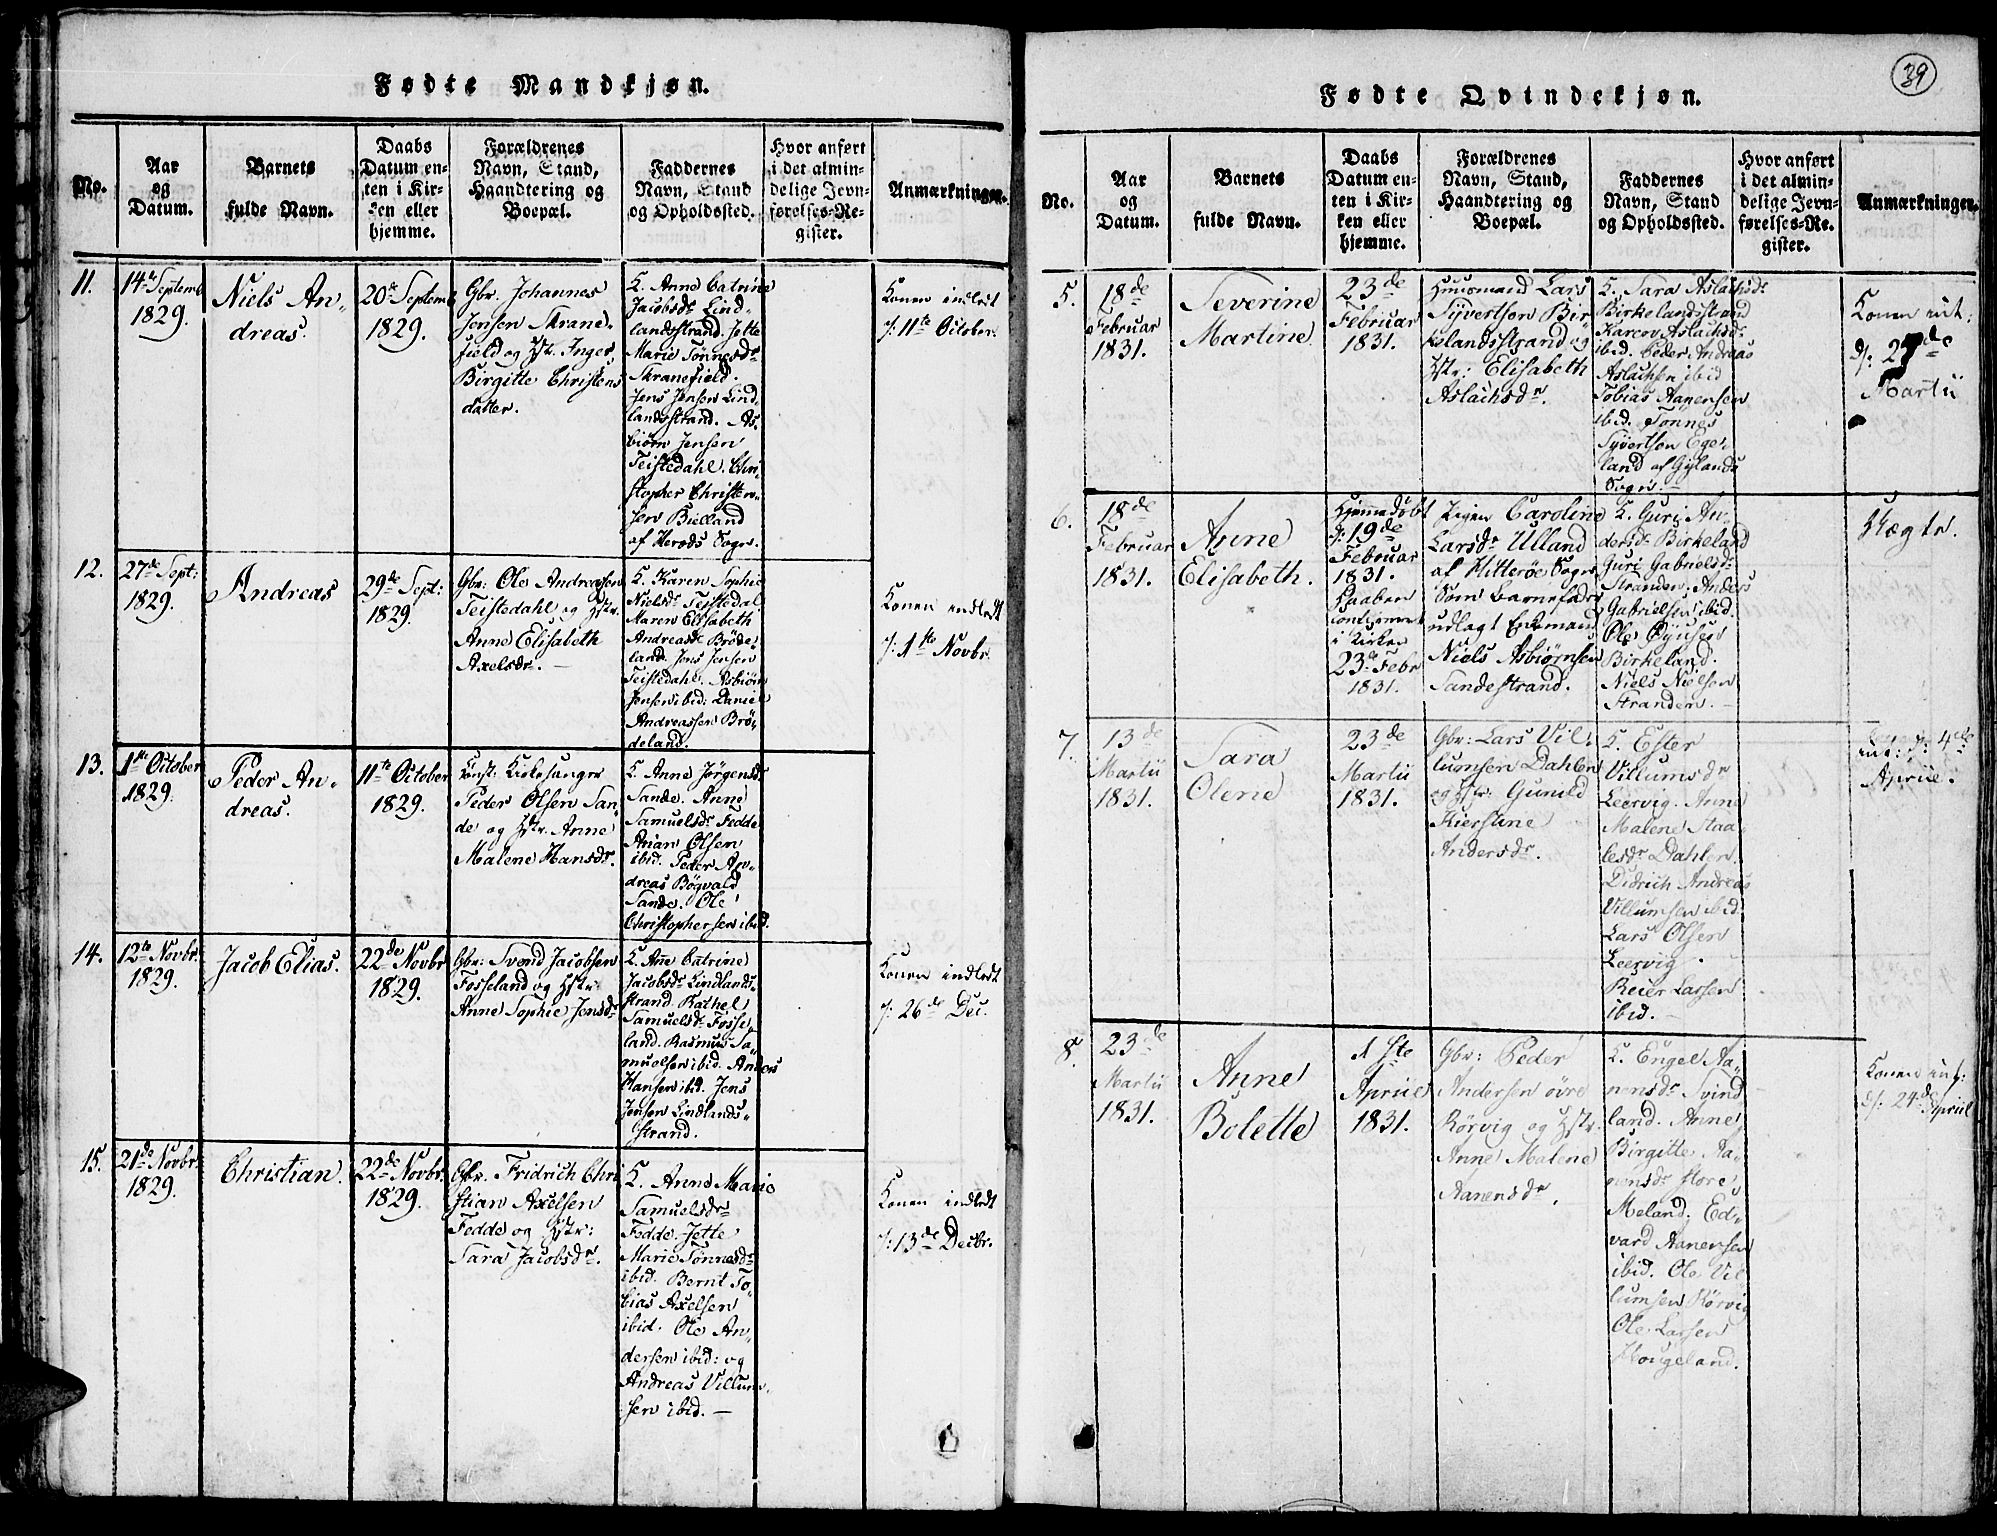 Fødte Mandkjøn.
No.
Aar
og
Datum.
Barnets
fulde Navn.
Daabs
Datum en-
ten i Kir-
ken eller
hjemme.
Forældrenes
Navn, Stand,
Haandtering og
Boepæl.
Faddernes
Navn, Stand
og Opholdssted.
Hvor anført
i det almin-
delige Jevn-
førelses-Re-
gister.
Anmærkninger.
11.
14de Septemb
1829.
Niels An-
dreas.
20de Septemb
1829.
Gbr. Johannes
Jensen Skrane-
field og Hstr. Inger
Birgitte Christens
datter.
K. Anne Catrine
Jacobsdr Lind-
landsstrand. Jette
Marie Tönnesdr
Skranefield.
Jens Jensen Lind-
landsstrand. As-
biörn Jensen
Teistedahl. Chri-
stopher Christen-
sen Bielland
af Herods Sogn.
Konen indledt
d: 11te October.
12.
27de Sept:
1829.
Andreas
29de Sept:
1829.
Gbr: Ole Andreasen
Teistedahl og Hstr.
Anne Elisabeth
Axelsdr. —
K. Karen Sophie
Nielsdr Teistedal.
Maren Elisabeth
Andreasdr Bröde-
land. Jens Jensen
Teistedahl. Asbiörn
Jensen ibid: Daniel
Andreassen Brö-
deland.
Konen indledt
d: 1ste Novbr.
13.
1ste October
1829.
Peder An-
dreas.
11te October
1829.
Const: Kirkesanger
Peder Olsen San-
de og Hstr. Anne
Malene Hansdr.
K. Anne Jörgensdr
Sande. Anne
Samuelsdr Fedde
Arian Olsen
ibid. Peder An-
dreas Bögvald
Sande. Ole
Christophersen ibid.
14.
12te Novbr.
1829.
Jacob Elias.
22de Novbr
1829.
Gbr: Svend Jacobsen
Fosseland og Hstr
Anne Sophie Jensdr
K. Ane Catrine
Jacobsdr Lindlands-
strand. Rathel
Samuelsdr Fosse-
land. Rasmus Sa-
muelsen ibid. Anders
Hansen ibid. Jens
Jensen Lindlands-
strand.
Konen indledt
d: 26de Dec.
15.
21de Novbr.
1829.
Christian.
22de Novbr.
1829.
Gbr. Fridrich Chri
stian Axelsen
Fedde og Hstr:
Sara Jacobsdr.
K. Anne Marie
Samuelsdr
Fedde. Jette
Marie Tönnesdr
ibid. Bernt To-
bias Axelsen
ibid. Ole An-
dersen ibid: og
Andreas Villum-
sen ibid. —
Konen indledt
d: 13de Decbr.
39
Fødte Qvindekjøn.
No.
Aar
og
Datum.
Barnets
fulde Navn.
Daabs
Datum en-
ten i Kir-
ken eller
hjemme.
Forældrenes
Navn, Stand,
Haandtering og
Boepæl.
Faddernes
Navn, Stand
og Opholdssted.
Hvor anført
i det almin-
delige Jevn-
førelses-Re-
gister.
Anmærkninger.
5.
18de
Februar
1831.
Severine
Martine
23de
Februar
1831.
Huusmand Lars
Syvertsen Bir
kelandsstrand og
Hstr: Elisabeth
Aslachsdr.
K. Sara Aslachsdr
Birkelandsstrand
Karen Aslachsdr
ibid. Peder Andreas
Aslachsen ibid
Tobias Aanensen
ibid. Tönnes
Syvertsen Ege-
land af Gylands
Sogn. —
Konen int:
d:
Martii
6.
18de
Februar
1831.
Anne
Elisabeth.
Hjemmedöbt
d: 19de
Februar
1831.
Daaben
confirmeret
i Kirken
23de Febr
1831.
Pigen Caroline
Larsdr Ulland
af Hitteröe Sogn
Som Barnefader
udlagt Enkemand
Niels Asbiörnsen
Sandestrand.
K. Guri An-
dersdr Birkeland
Guri Gabrielsdr
Stranden. Anders
Gabrielsen ibid.
Ole
Birkeland.
Niels Nielsen
Stranden. —
Uægte.
7.
13de
Martii
1831.
Sara
Olene
23de
Martii
1831.
Gbr: Lars Vil-
lumsen Dahlen
og Hstr. Gunild
Kierstine
Andersdr.
K. Ester
Villumsdr
Leervig. Anne
Malene Staa-
lesdr Dahlen.
Didrich Andreas
Villumsen ibid.
Lars Olsen
Leervig.
Reier Larsen
ibid. —
int: d: 4de
Apriil.
8.
23de
Martii
1831.
Anne
Bolette
1ste
Apriil
1831.
Gbr: Peder
Andersen övre
Rörvig og Hstr.
Anne Malene
Aanensdr.
K. Engel Aa-
nensdr Svind
land. Anne
Birgitte Aa-
nensdr store
Meland. Ed-
vard Aanensen
ibid. Ole Vil
lumsen Rörvig
Ole Larsen
Hougeland.
Konen int:
d: 24de Apriil